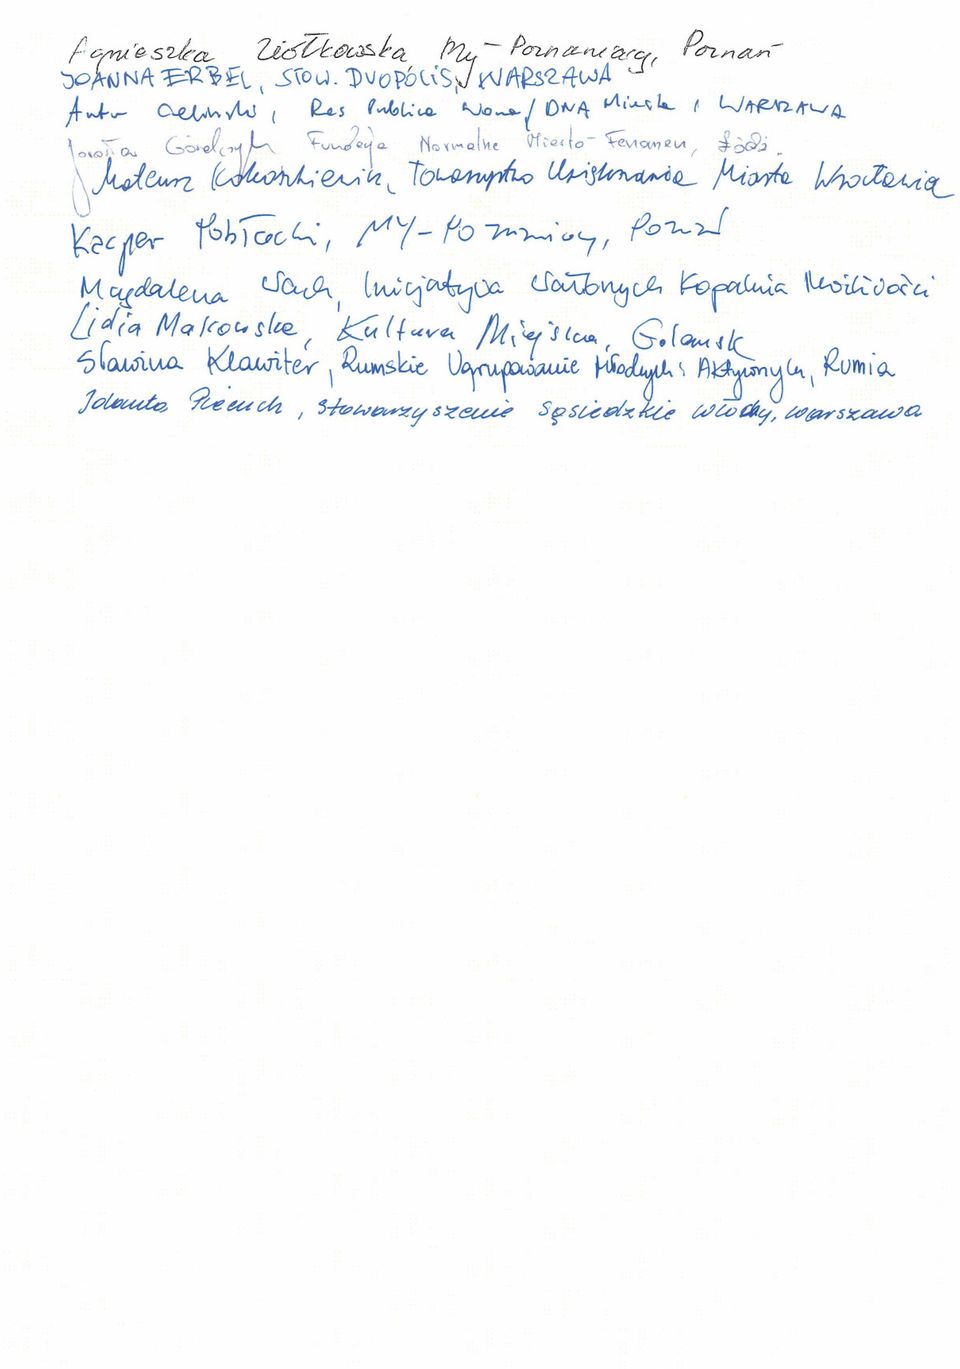 Agnieszka Ziółkowska, My-Poznaniacy, Poznań
JOANNA ERBEL, STOW. DUOPOLIS, WARSZAWA
Artur Celiński, Res Publica Nowa / DNA Miasta, WARSZAWA
Jarosław Góralczyk Fundacja Normalne Miasto-Fenomen, Łódź.
Mateusz Kokoszkiewicz, Towarzystwo Upiększania Miasta Wrocławia
Kacper Pobłocki, MY-Poznaniacy, Poznań
Magdalena Wach, Inicjatywa Wałbrzych Kopalnia Możliwości
Lidia Makowska, Kultura Miejska, Gdańsk
Sławina Klawiter, Rumskie Ugrupowanie Młodych i Aktywnych, Rumia
Jolanta Piecuch, Stowarzyszenie Sąsiedzkie Włochy, Warszawa